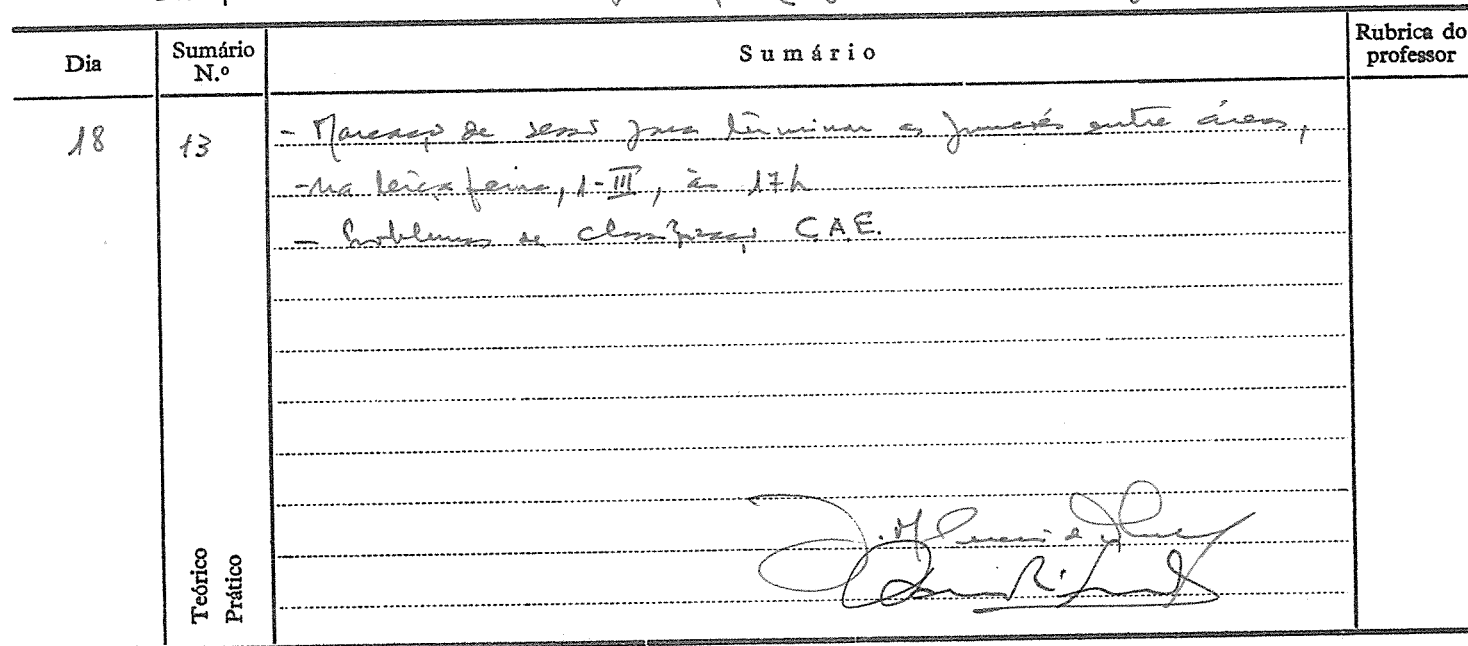 Dia
Sumário N.º
Sumário
Rubrica do professor
18
13
- Marcação de sessão para terminar as funções entre áreas,
- na terça feira, 1-III, às 17h
- Problemas de classificação C.A.E.
Teórico
Prático